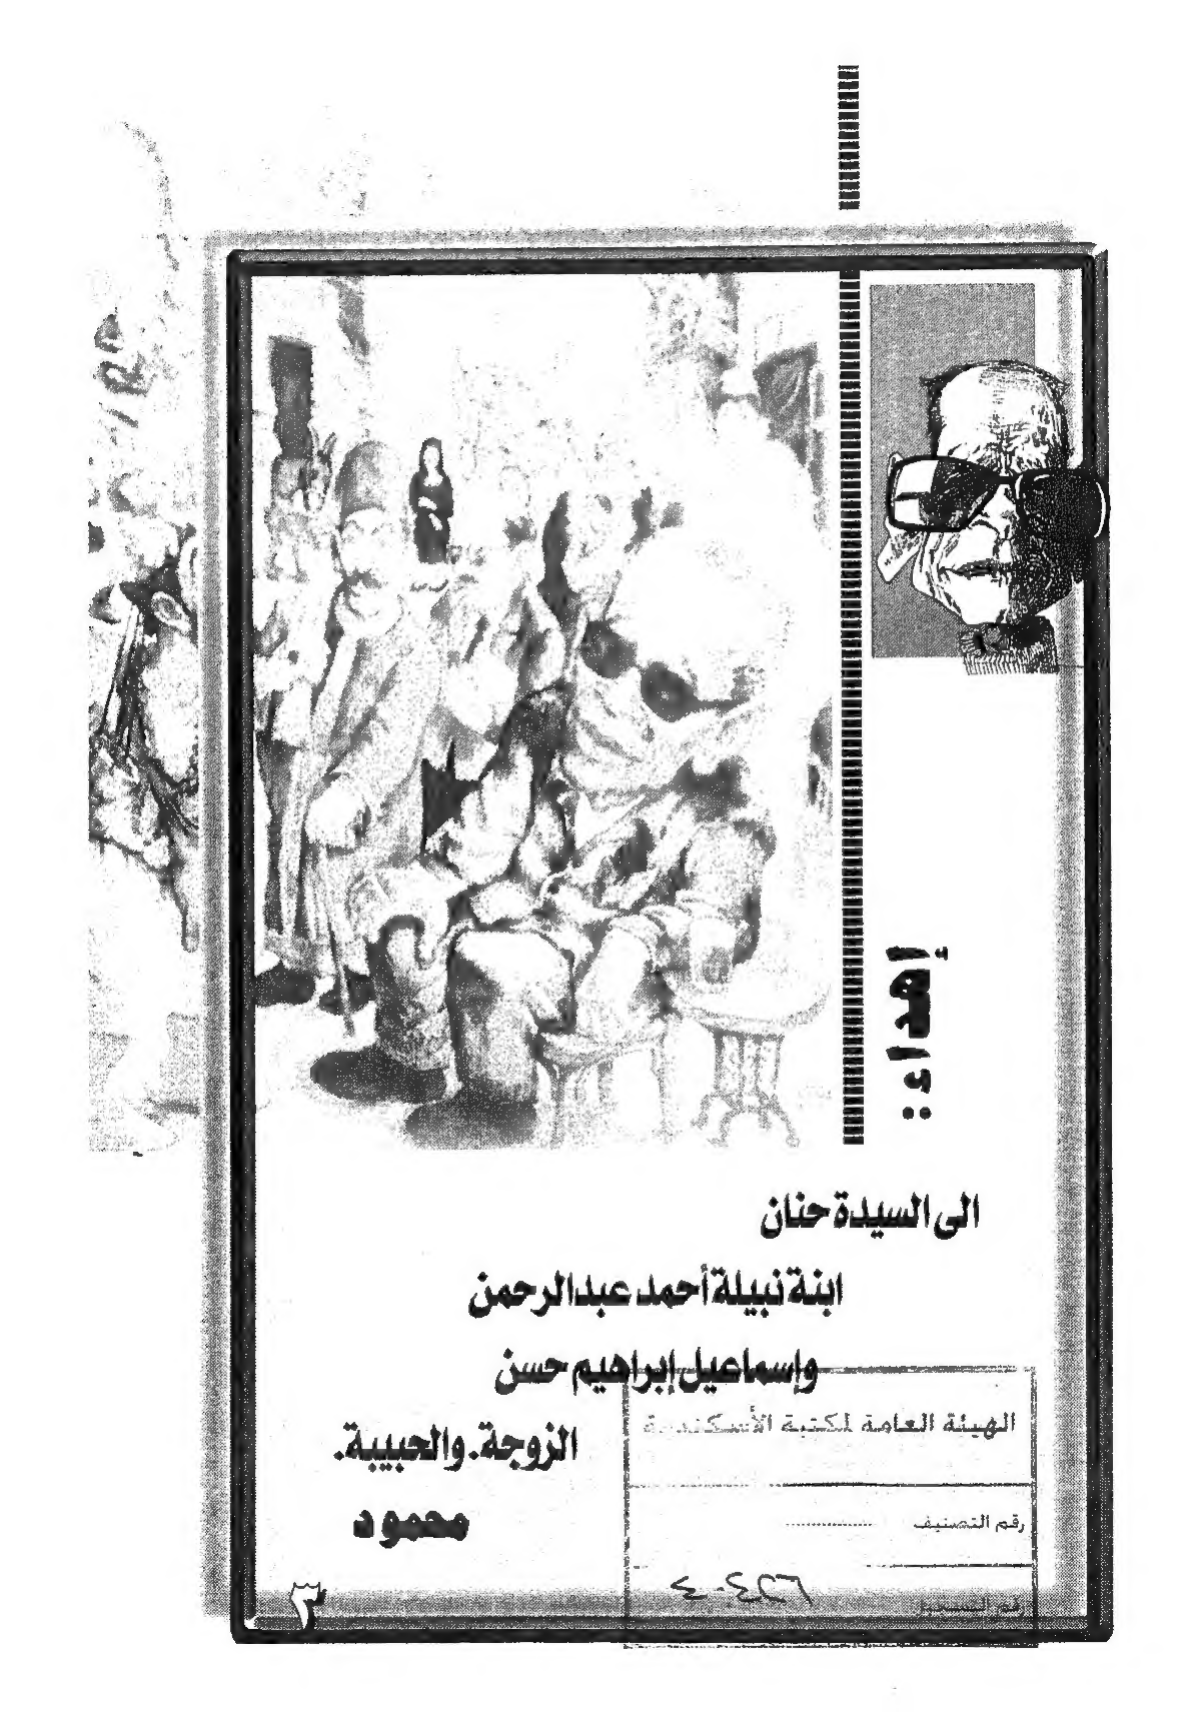 إهداء:
الى السيدة حنان
ابنة نبيلة أحمد عبدالرحمن
وإسماعيل إبراهيم حسن
الزوجة. والحبيبة.
محمود
الهيئة العامة لمكتبة الأسكندرية
رقم التصنيف
رقم التسجيل
٣